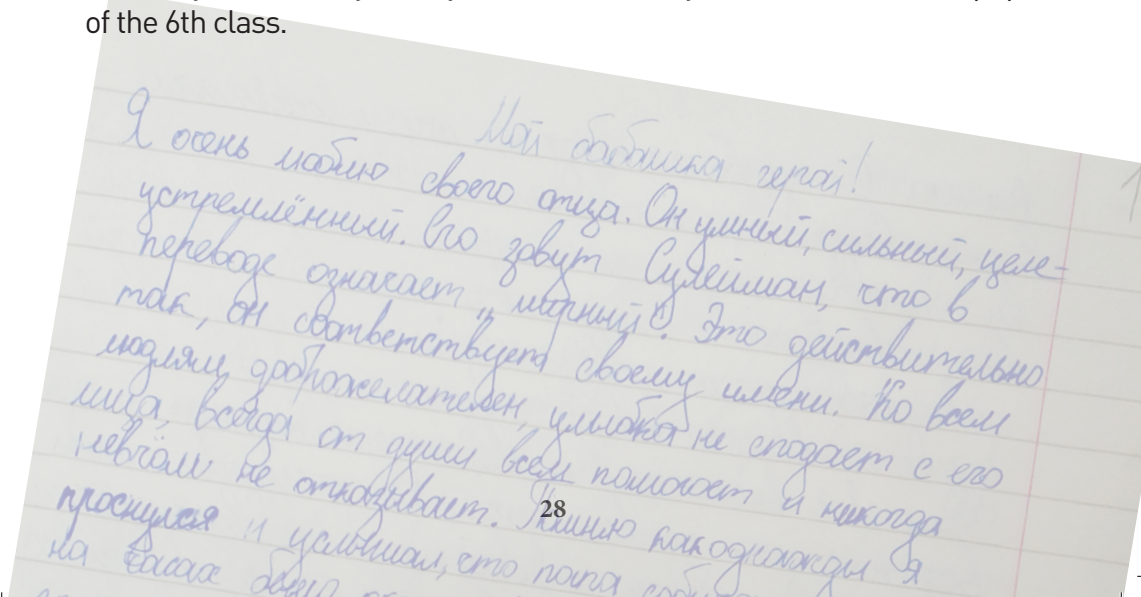 of the 6th class.
Мой бабашка герой!
Я очень люблю своего отца. Он умный, сильный, целе-
устремлённый. Его зовут Сулейман, что в
переводе означает „мирный“. Это действительно
так, он соответствует своему имени. Ко всем
людям доброжелателен, улыбка не сподает с его
лица, всегда от души всем помогает и никогда
невчём не отказывает. Помню как однажды я
28
проснулся и услышал, что папа
на часах было